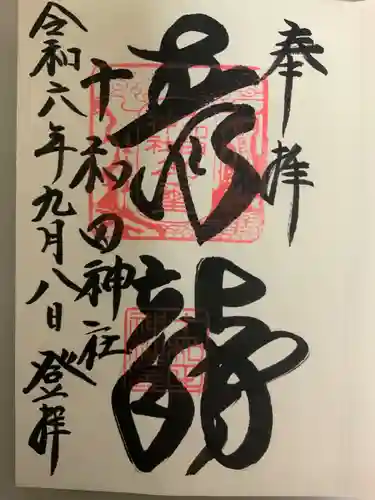 奉拝
青龍
十和田神社
令和六年九月八日登拝